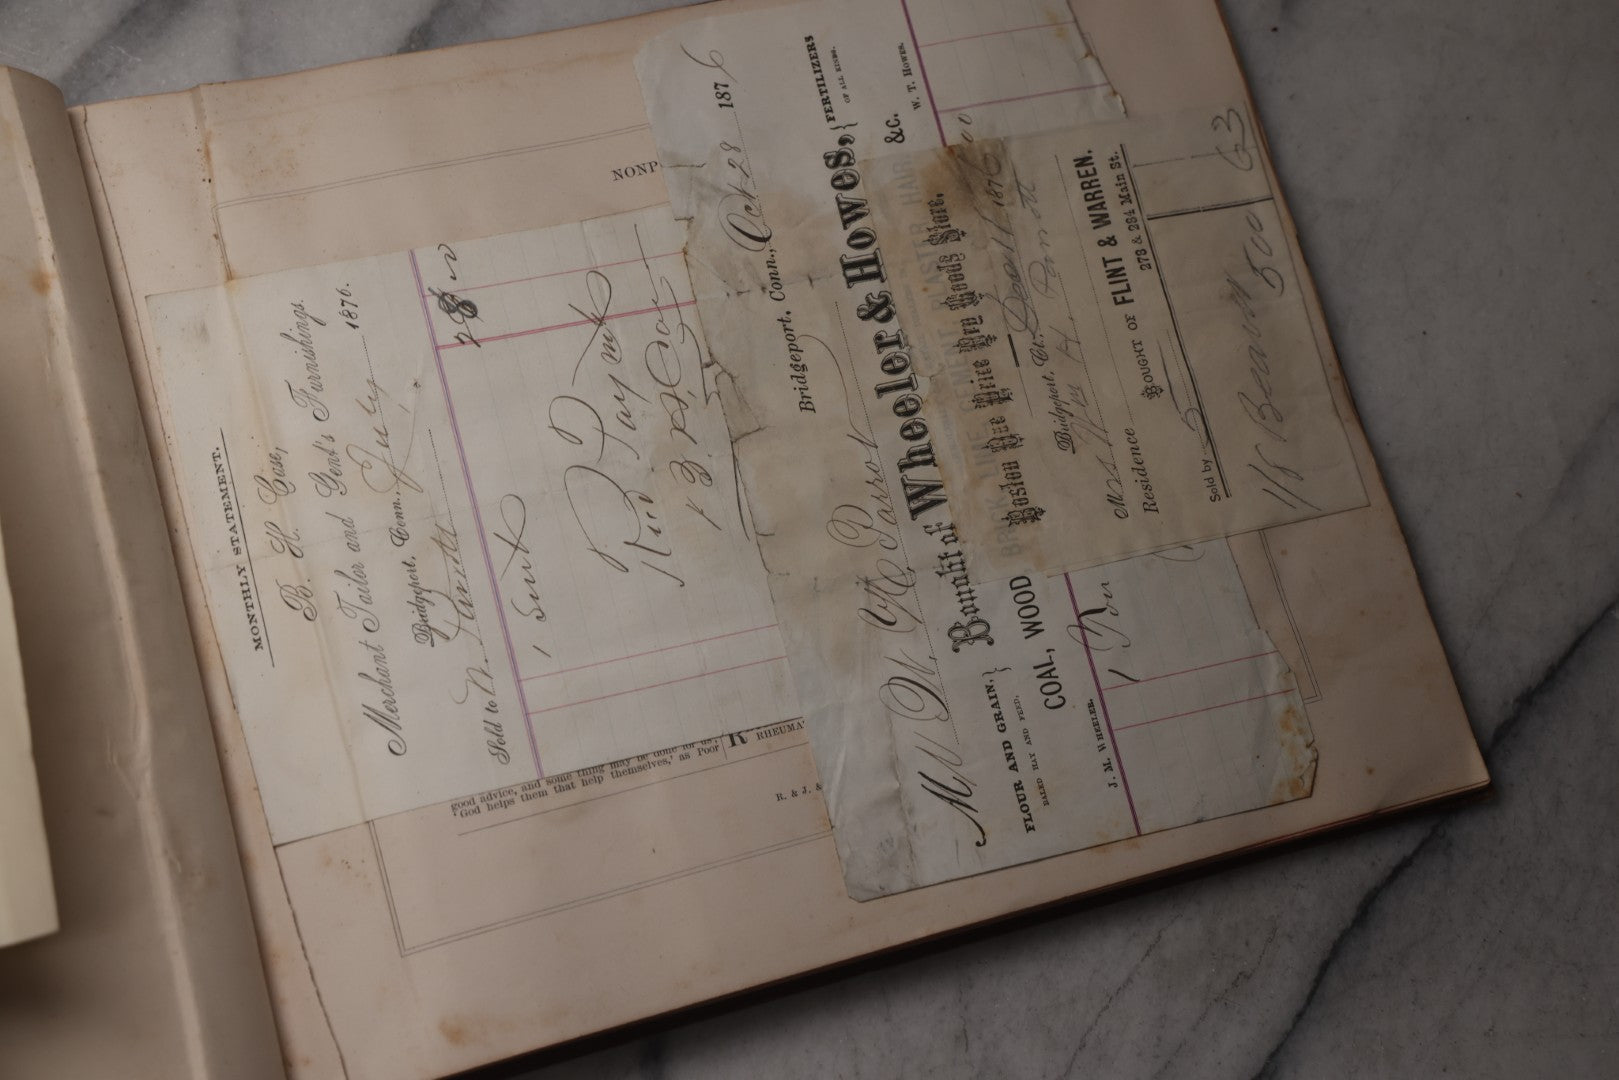 MONTHLY STATEMENT.
B. H. Case,
Merchant Tailor and Gent's Furnishings.
Bridgeport, Conn., July 1876.
Sold to
1 Suit 28
Rec Paymt
B. H. Case
NONP
good advice, and some thing may be done for us,
'God helps them that help themselves,' as Poor
R
RHEUMA
R. & J. &
Bridgeport, Conn., Oct 28 1876
M W. W. Parrott
Bought of Wheeler & Howes,
FLOUR AND GRAIN, } { FERTILIZERS
BALED HAY AND FEED, OF ALL KINDS.
COAL, WOOD, BRICK, LIME, CEMENT, PLASTER, HAIR &C.
J. M. WHEELER. W. T. HOWES.
1 Ton
Boston One Price Dry Goods Store.
Bridgeport, Ct. 1876
Mrs Wm H. Parrott
Residence
BOUGHT OF FLINT & WARREN.
Sold by 273 & 264 Main St.
500 63